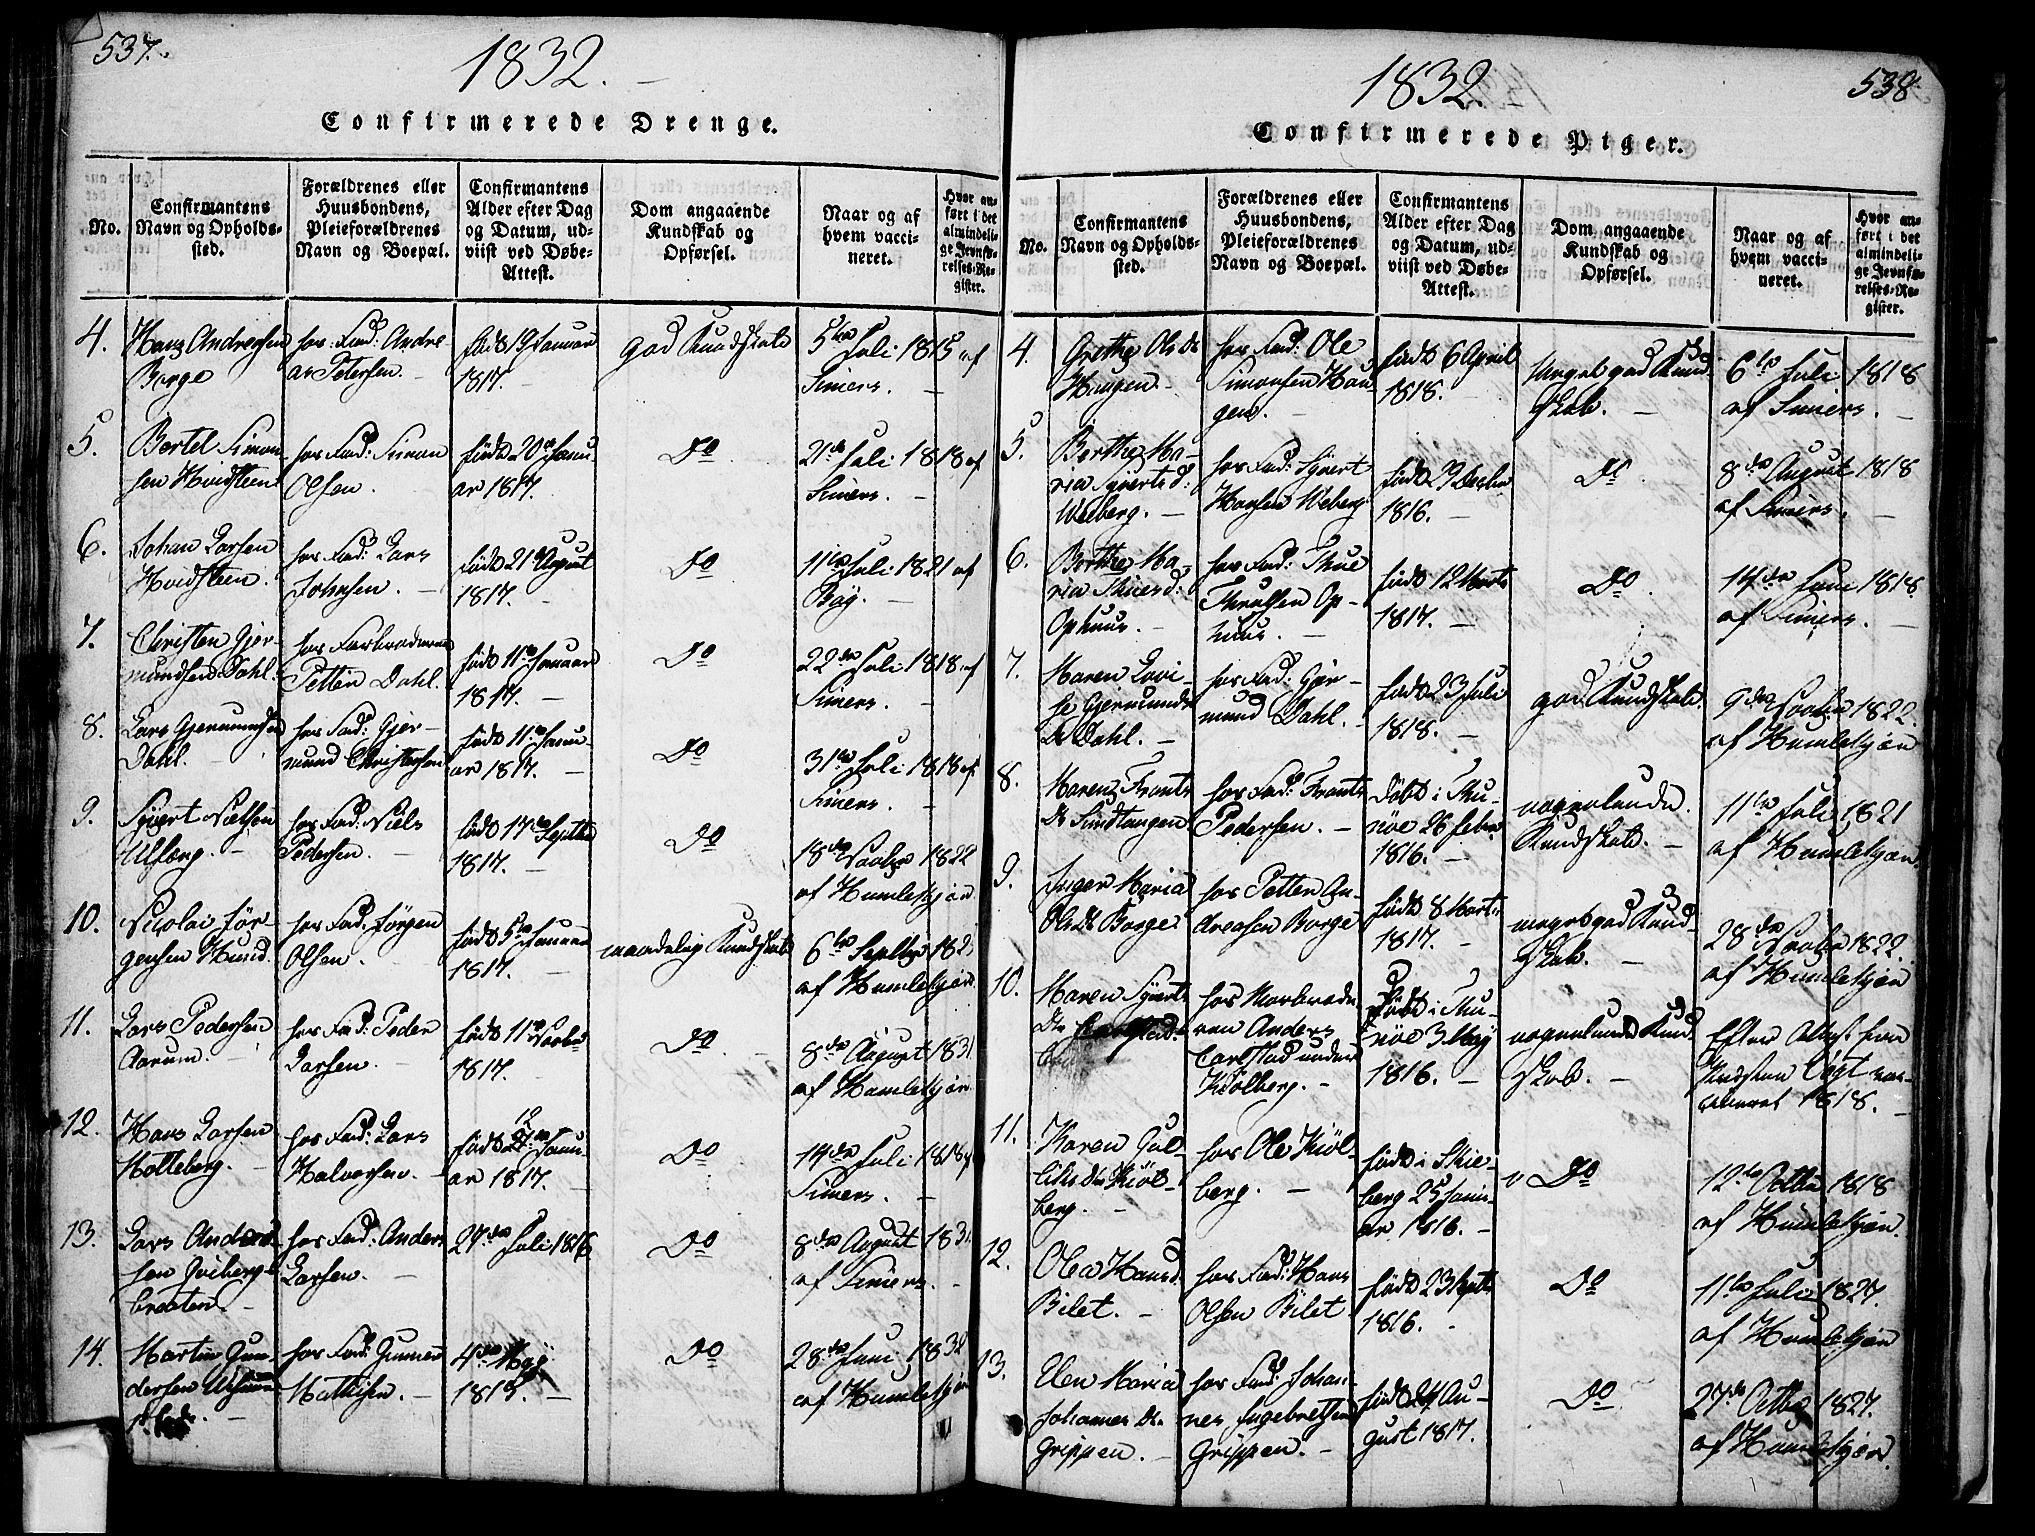 537.
1832.
Confirmerede Drenge.
No.
Confirmantens
Navn og Opholds-
sted.
Forældrenes eller
Huusbondens,
Pleieforældrenes
Navn og Boepæl.
Confirmantens
Alder efter Dag
og Datum, ud-
viist ved Døbe-
Attest.
Dom angaaende
Kundskab og
Opførsel.
Naar og af
hvem vacci-
neret.
Hvor an-
ført i det
almindeli-
ge Jevnfø-
relses-Re-
gister.
4.
Hans Andreasen
Borge
hos Fad: Andre
as Petersen.
født 19 Januar
1817.
god Kundskab
5te Juli 1815 af
Simers.
5.
Bertel Simon-
sen Hvidsteen
hos Fad: Simon
Olsen.
født 20 Janu
ar 1817.
Do
21de Juli 1818 af
Simers.
6.
Johan Larsen
Hvidsteen.
hos Fad: Lars
Johnsen.
født 21 August
1817.
Do
11te Juli 1821 af
Bøy.
7.
Christen Gjer-
mundsen Dahl.
hos Farbroderen
Petter Dahl.
født 11te Januar
1817.
Do
22de Juli 1818 af
Simers.
8.
Lars Gjermundsen
Dahl.
hos Fad: Gjer-
mund Christensen
født 11te Janu-
ar 1817.
Do
31te Juli 1818 af
Simers.
9.
Syvert Nielsen
Ulfeng.
hos Fad: Niels
Pedersen.
født 17te Septbr
1817.
Do
18de Novbr 1822
af Humlekjær
10.
Nicolai Jør-
gensen Hund.
hos Fad: Jørgen
Olsen.
født 5te Januar
1817.
maadelig Kundskab
6te Septbr 182
af Humlekjær
11.
Lars Pedersen
Aarum.
hos Fad: Peder
Larsen.
født 11te Novbr
1817.
Do
8de August 1831
af Humlekjær
12.
Hans Larsen
Holleberg.
hos Fad: Lars
Halvorsen.
født 12 Janu-
ar 1817.
Do
14de Juli 1818 af
Simers.
13.
Lars Anders-
sen Qviberg-
braaten.
hos Fad: Anders
Larsen.
27de Juli 1816
Do
8de August 1831
af Simers.
14.
Martin Gun-
dersen
hos Fad: Gunner
Mathisen.
4de May
1815.
Do
28de Juni 1832
af Humlekjær
538.
1832.
Confirmerede Piger.
No.
Confirmantens
Navn og Opholds-
sted.
Forældrenes eller
Huusbondens,
Pleieforældrenes
Navn og Boepæl.
Confirmantens
Alder efter Dag
og Datum, ud-
viist ved Døbe-
Attest.
Dom angaaende
Kundskab og
Opførsel.
Naar og af
hvem vacci-
neret.
Hvor an-
ført i det
almindeli-
ge Jevnfø-
relses-Re-
gister.
4.
Grethe Olsdr
Haugen.
hos Fad: Ole
Simonsen Hau
gen.
født 6 April
1818.
meget god Kund-
skab.
6te Juli 1818
af Simers.
5.
Berthe Ma-
ria Syvertsd:
Weberg.
hos Fad: Syvert
Hansen Weberg
født 29 Decbr
1816.
Do
8de August 1818
af Simers.
6.
Berthe Ma-
ria Thuesd:
Ophuus.
hos Fad: Thue
Thruelsen Op-
huus.
født 12 Marts
1817.
Do
14de Juni 1818
af Simers.
7.
Maren Lovi-
se Gjermunds
dr Dahl.
hos Fad: Gjer-
mund Dahl.
født 23 Juli
1818.
god Kundskab.
9de Novbr 1822.
af Humlekjær
8.
Maren Frants
dr Sundtangen
hos Fad: Frants
Pedersen.
døbt i Thu-
nöe 26 Febr
1816.
nogenlunde
Kundskab.
11te Juli 1821
af Humlekjær
9.
Inger Maria
Olsdr Borge
hos Petter An-
dreasen Borge
født 8 Marts
1817.
meget god Kund-
skab.
28de Novbr 1822.
af Humlekjær
10.
Maren Syverts
dr
hos Morbrode
ren Anders
Carlstad under
Kiölberg.
født i Thu-
nöe 3 May
1816.
nogenlunde Kund
skab.
Efter Attest fra
Vogt vac-
cineret 1818.
11.
Karen Gul-
liksdr Kiöl-
berg.
hos Ole Kiöl-
berg.
født i Skie-
berg 25 Janu-
ar 1816.
Do
12te Octbr 1818
af Humlekjær.
12.
Olea Hansd.
Bilet.
hos Fad: Hans
Olsen Bilet
født 23 Septbr
1816.
Do
11te Juli 1827.
af Humlekjær
13.
Elen Maria
Johannesdr
Grippen.
hos Fad: Johan-
nes Ingebretsen
Grippen.
født 24 Au-
gust 1817.
Do
27de Octbr 1827.
af Humlekjær.